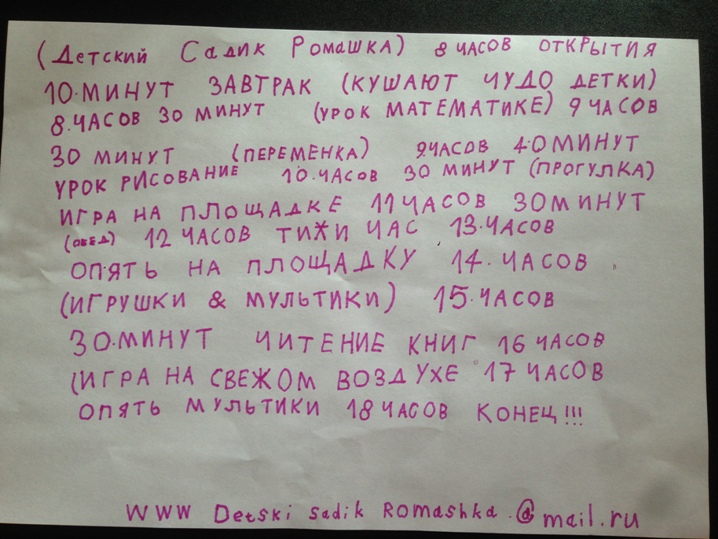 (Детский Садик Ромашка) 8 ЧАСОВ ОТКРЫТИЯ
10.МИНУТ ЗАВТРАК (КУШАЮТ ЧУДО ДЕТКИ)
8.ЧАСОВ 30 МИНУТ (УРОК МАТЕМАТИКЕ) 9 ЧАСОВ
30 МИНУТ (ПЕРЕМЕНКА) 9ЧАСОВ 40МИНУТ
УРОК РИСОВАНИЕ 10.ЧАСОВ 30 МИНУТ (ПРОГУЛКА)
ИГРА НА ПЛОЩАДКЕ 11 ЧАСОВ 30МИНУТ
(ОБЕД) 12 ЧАСОВ ТИХИ ЧАС 13.ЧАСОВ
ОПЯТЬ НА ПЛОЩАДКУ 14.ЧАСОВ
(ИГРУШКИ & МУЛЬТИКИ) 15.ЧАСОВ
30.МИНУТ ЧИТЕНИЕ КНИГ 16 ЧАСОВ
(ИГРА НА СВЕЖОМ ВОЗДУХЕ 17 ЧАСОВ
ОПЯТЬ МУЛЬТИКИ 18 ЧАСОВ КОНЕЦ!!!
WWW Detski sadik Romashka.@mail.ru